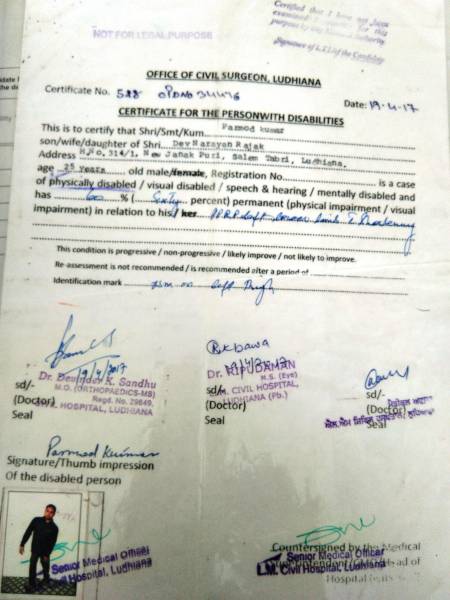 Certified that I have not been
examined
purpose by any Medical Authority
Signature of L.T.I of the Candidate
NOT FOR LEGAL PURPOSE
OFFICE OF CIVIL SURGEON, LUDHIANA
Certificate No. 528 OPDNO 34476
Date: 19-4-17
CERTIFICATE FOR THE PERSONWITH DISABILITIES
This is to certify that Shri/Smt/Kum Parmod kumar
son/wife/daughter of Shri Dev Narayan Rajak
Address H.No. 314/1, New Janak Puri, Salem Tabri, Ludhiana.
age 25 Years old male/female, Registration No. is a case
of physically disabled / visual disabled / speech & hearing / mentally disabled and
has 60 % ( Sixty percent) permanent (physical impairment / visual
impairment) in relation to his/ her PPRP left lower limb
This condition is progressive / non-progressive / likely improve / not likely to improve.
Re-assessment is not recommended / is recommended after a period of
Identification mark on left thigh
19/4/2017
Dr. Devinder K. Sandhu
M.O. (ORTHOPAEDICS-MS)
Regd. No. 29649,
CIVIL HOSPITAL, LUDHIANA
sd/-
(Doctor)
Seal
Dr. RIPUDAMAN
M.S. (Eye)
CIVIL HOSPITAL,
LUDHIANA (Pb.)
sd/-
(Doctor)
Seal
sd/-
(Doctor)
Seal
Parmod Kumar
Signature/Thumb impression
Of the disabled person
Senior Medical Officer
Civil Hospital, Ludhiana
Countersigned by the Medical
Senior Medical Officer
L.M. Civil Hospital, Ludhiana
Head of
Hospital